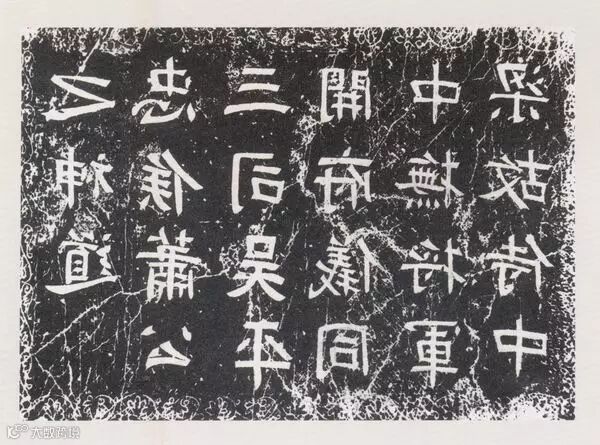 梁故侍中
中撫將軍
開府儀同
三司吳平
忠侯蕭公
之神道
大数跨境